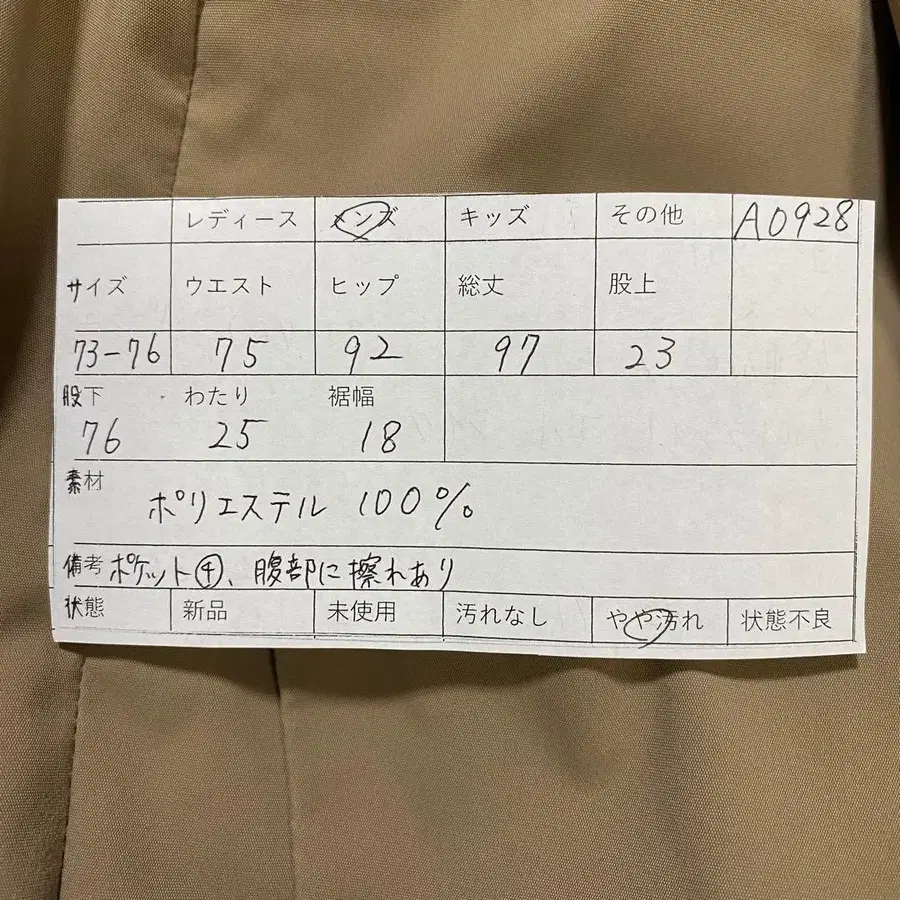 レディース メンズ キッズ その他 A0928
サイズ ウエスト ヒップ 総丈 股上
73-76 75 92 97 23
股下 わたり 裾幅
76 25 18
素材
ポリエステル 100%
備考 ポケット④、腹部に擦れあり
状態 新品 未使用 汚れなし やや汚れ 状態不良